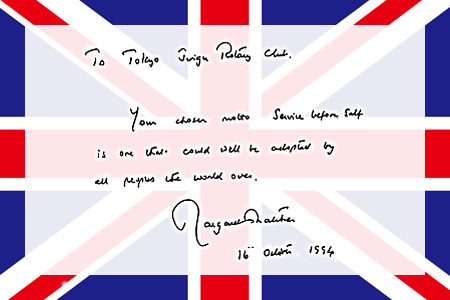 To Tokyo Jingu Rotary Club.
Your chosen motto Service before Self
is one that could well be adopted by
all peoples the world over.
Margaret Thatcher
16th October 1994